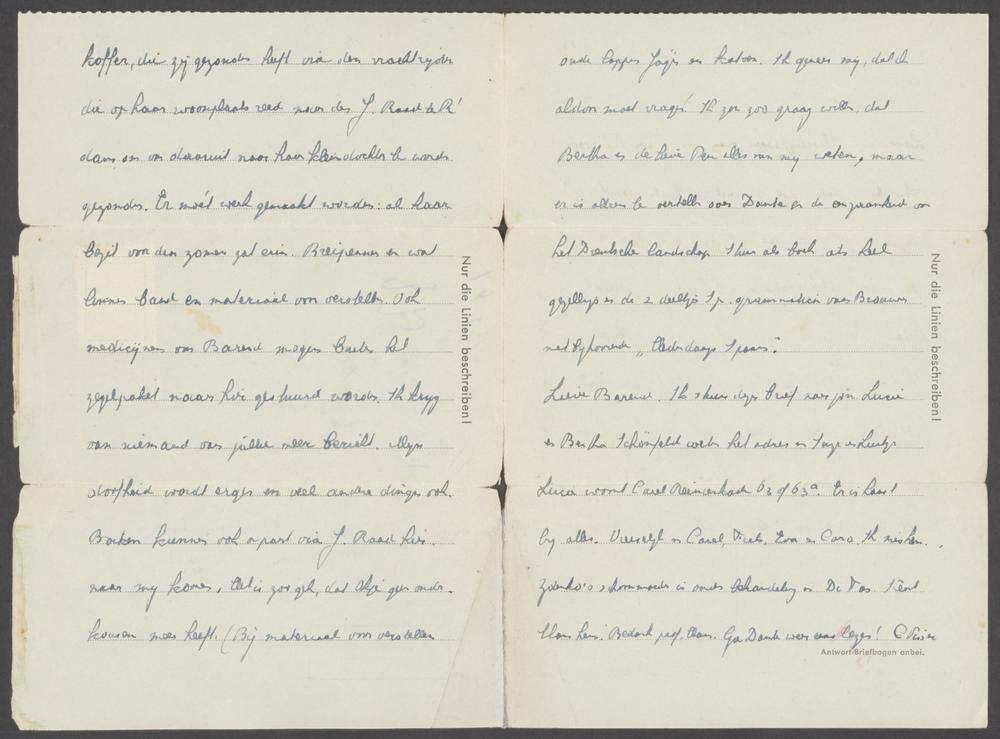 koffer, die zij gezonden heeft via den vrachtrijder
die op haar woonplaats reed naar den J. Raad te R'
dam om van daaruit naar haar kleindochter te worden
gezonden. Er móét werk gemaakt worden: al haar
bezit voor den zomer zat erin. Breipennen en wat
linnen band en materiaal voor verstellen. Ook
medicijnen van Barend mogen buiten het
zegelpakket naar hier gestuurd worden. Ik kryg
van niemand van jullie meer bericht. Myn
doofheid wordt erger en veel andere dingen ook.
Boeken kunnen ook apart via J. Raad hier
naar my komen. Het is zoo gek, dat geen onder-
kousen meer heeft. (Bij materiaal voor verstellen
oude lapjes en katoen. Ik geneer my, dat ik
aldoor moet vragen! Ik zou zoo graag willen, dat
Bertha en de lieve Pen alles van my weten, maar
er is alleen te vertellen over Dante en de van
het Drentsche landschap. Stuur als boek als heel
gezelligs en de 2 deeltjes Sp. grammatica van Brouwer
met bijhorende „ Spaans".
Lieve Barend. Ik stuur dezen brief naar jou. Lucie
en Bertha Schönfeld weten het adres en Inge en
Lucie woont Carel Reinierskade 63 of 63a. Er is haast
by alles. en Carel, Eva en Caro. Ik zie hen.
schoonmoeder is onder behandeling en De Vas
Hans hier. Bedank prof. Hans. Ga Dante weer lezen!
Nur die Linien beschreiben!
Nur die Linien beschreiben!
Antwort-Briefbogen anbei.